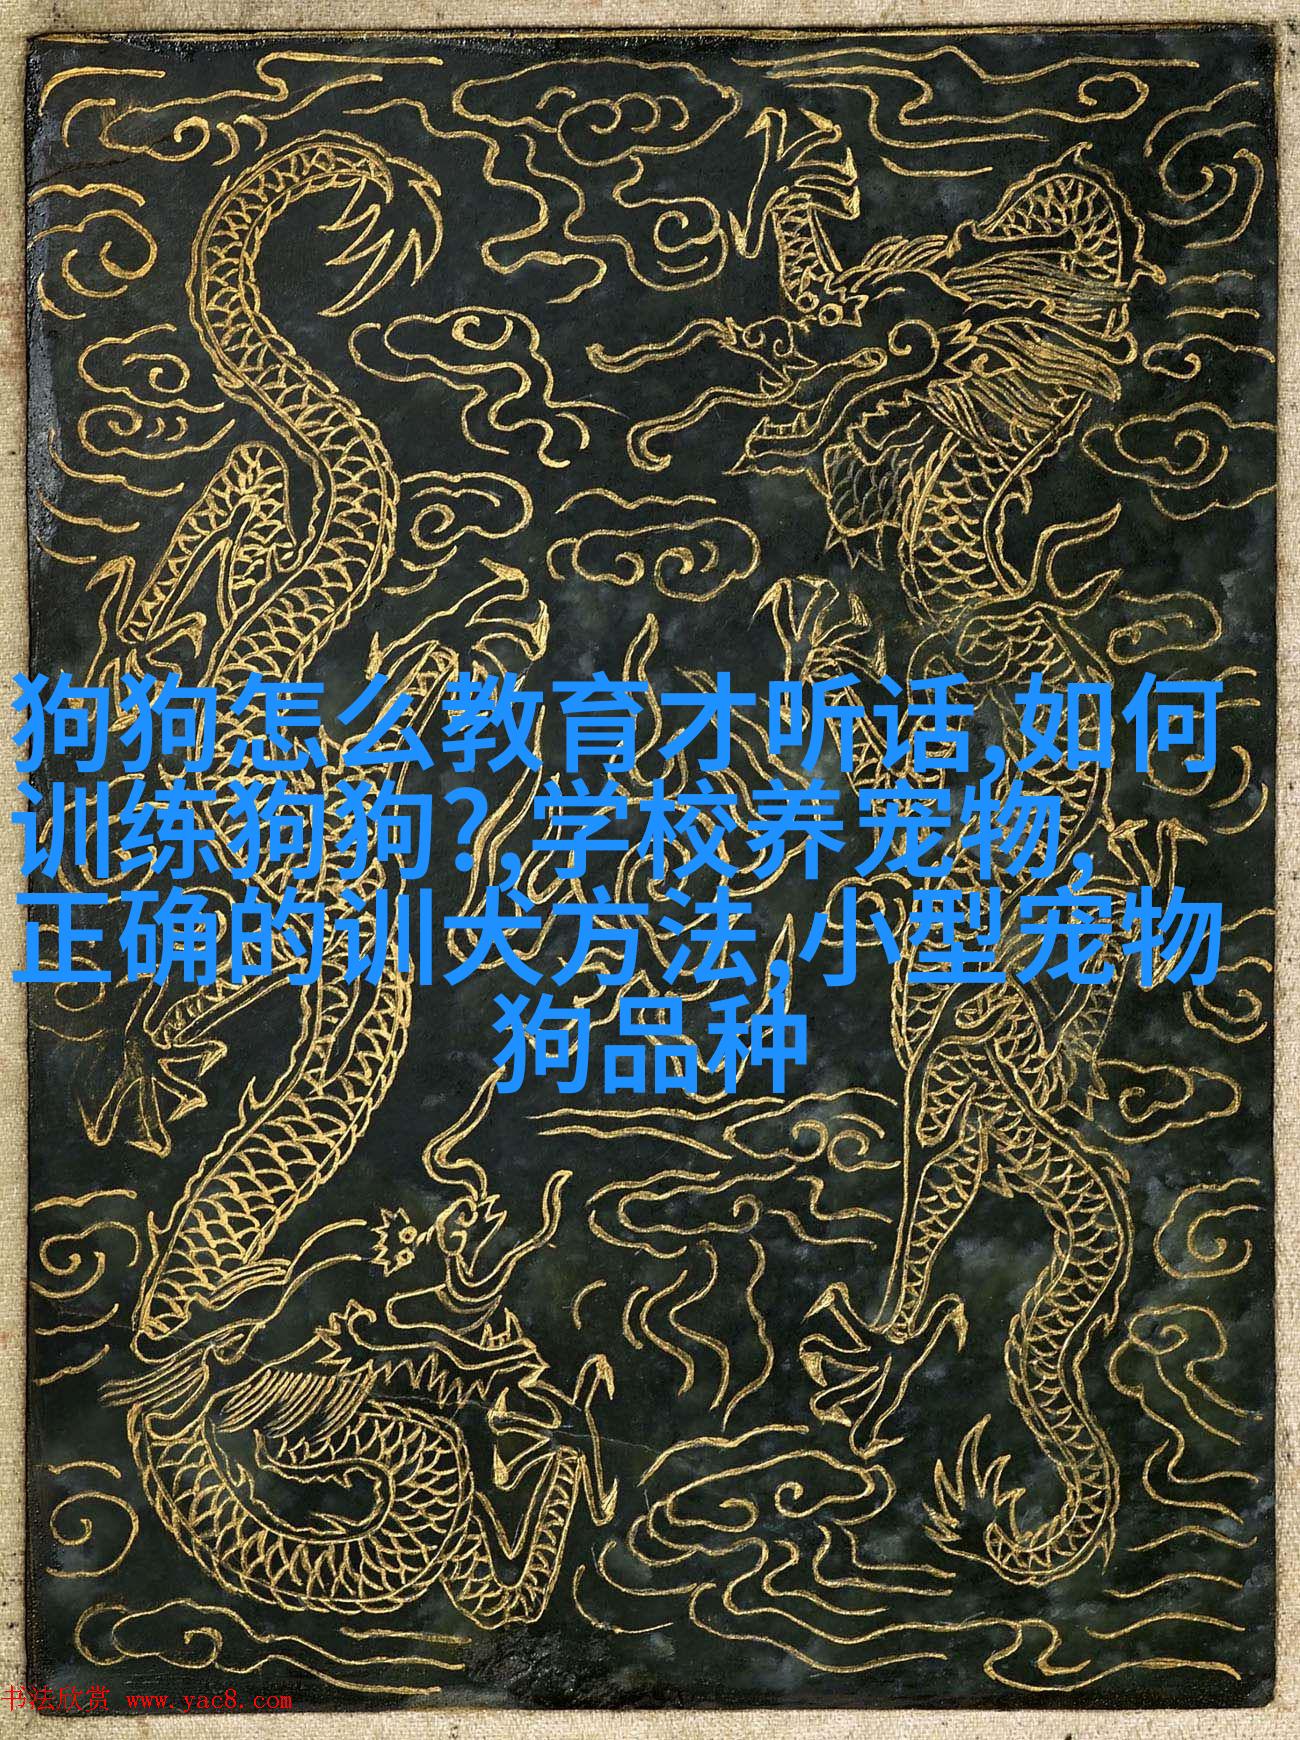 狗狗怎么教育才听话,如何
训练狗狗?,学校养宠物,
正确的训犬方法,小型宠物
狗品种
书法欣赏 www.yac8.com